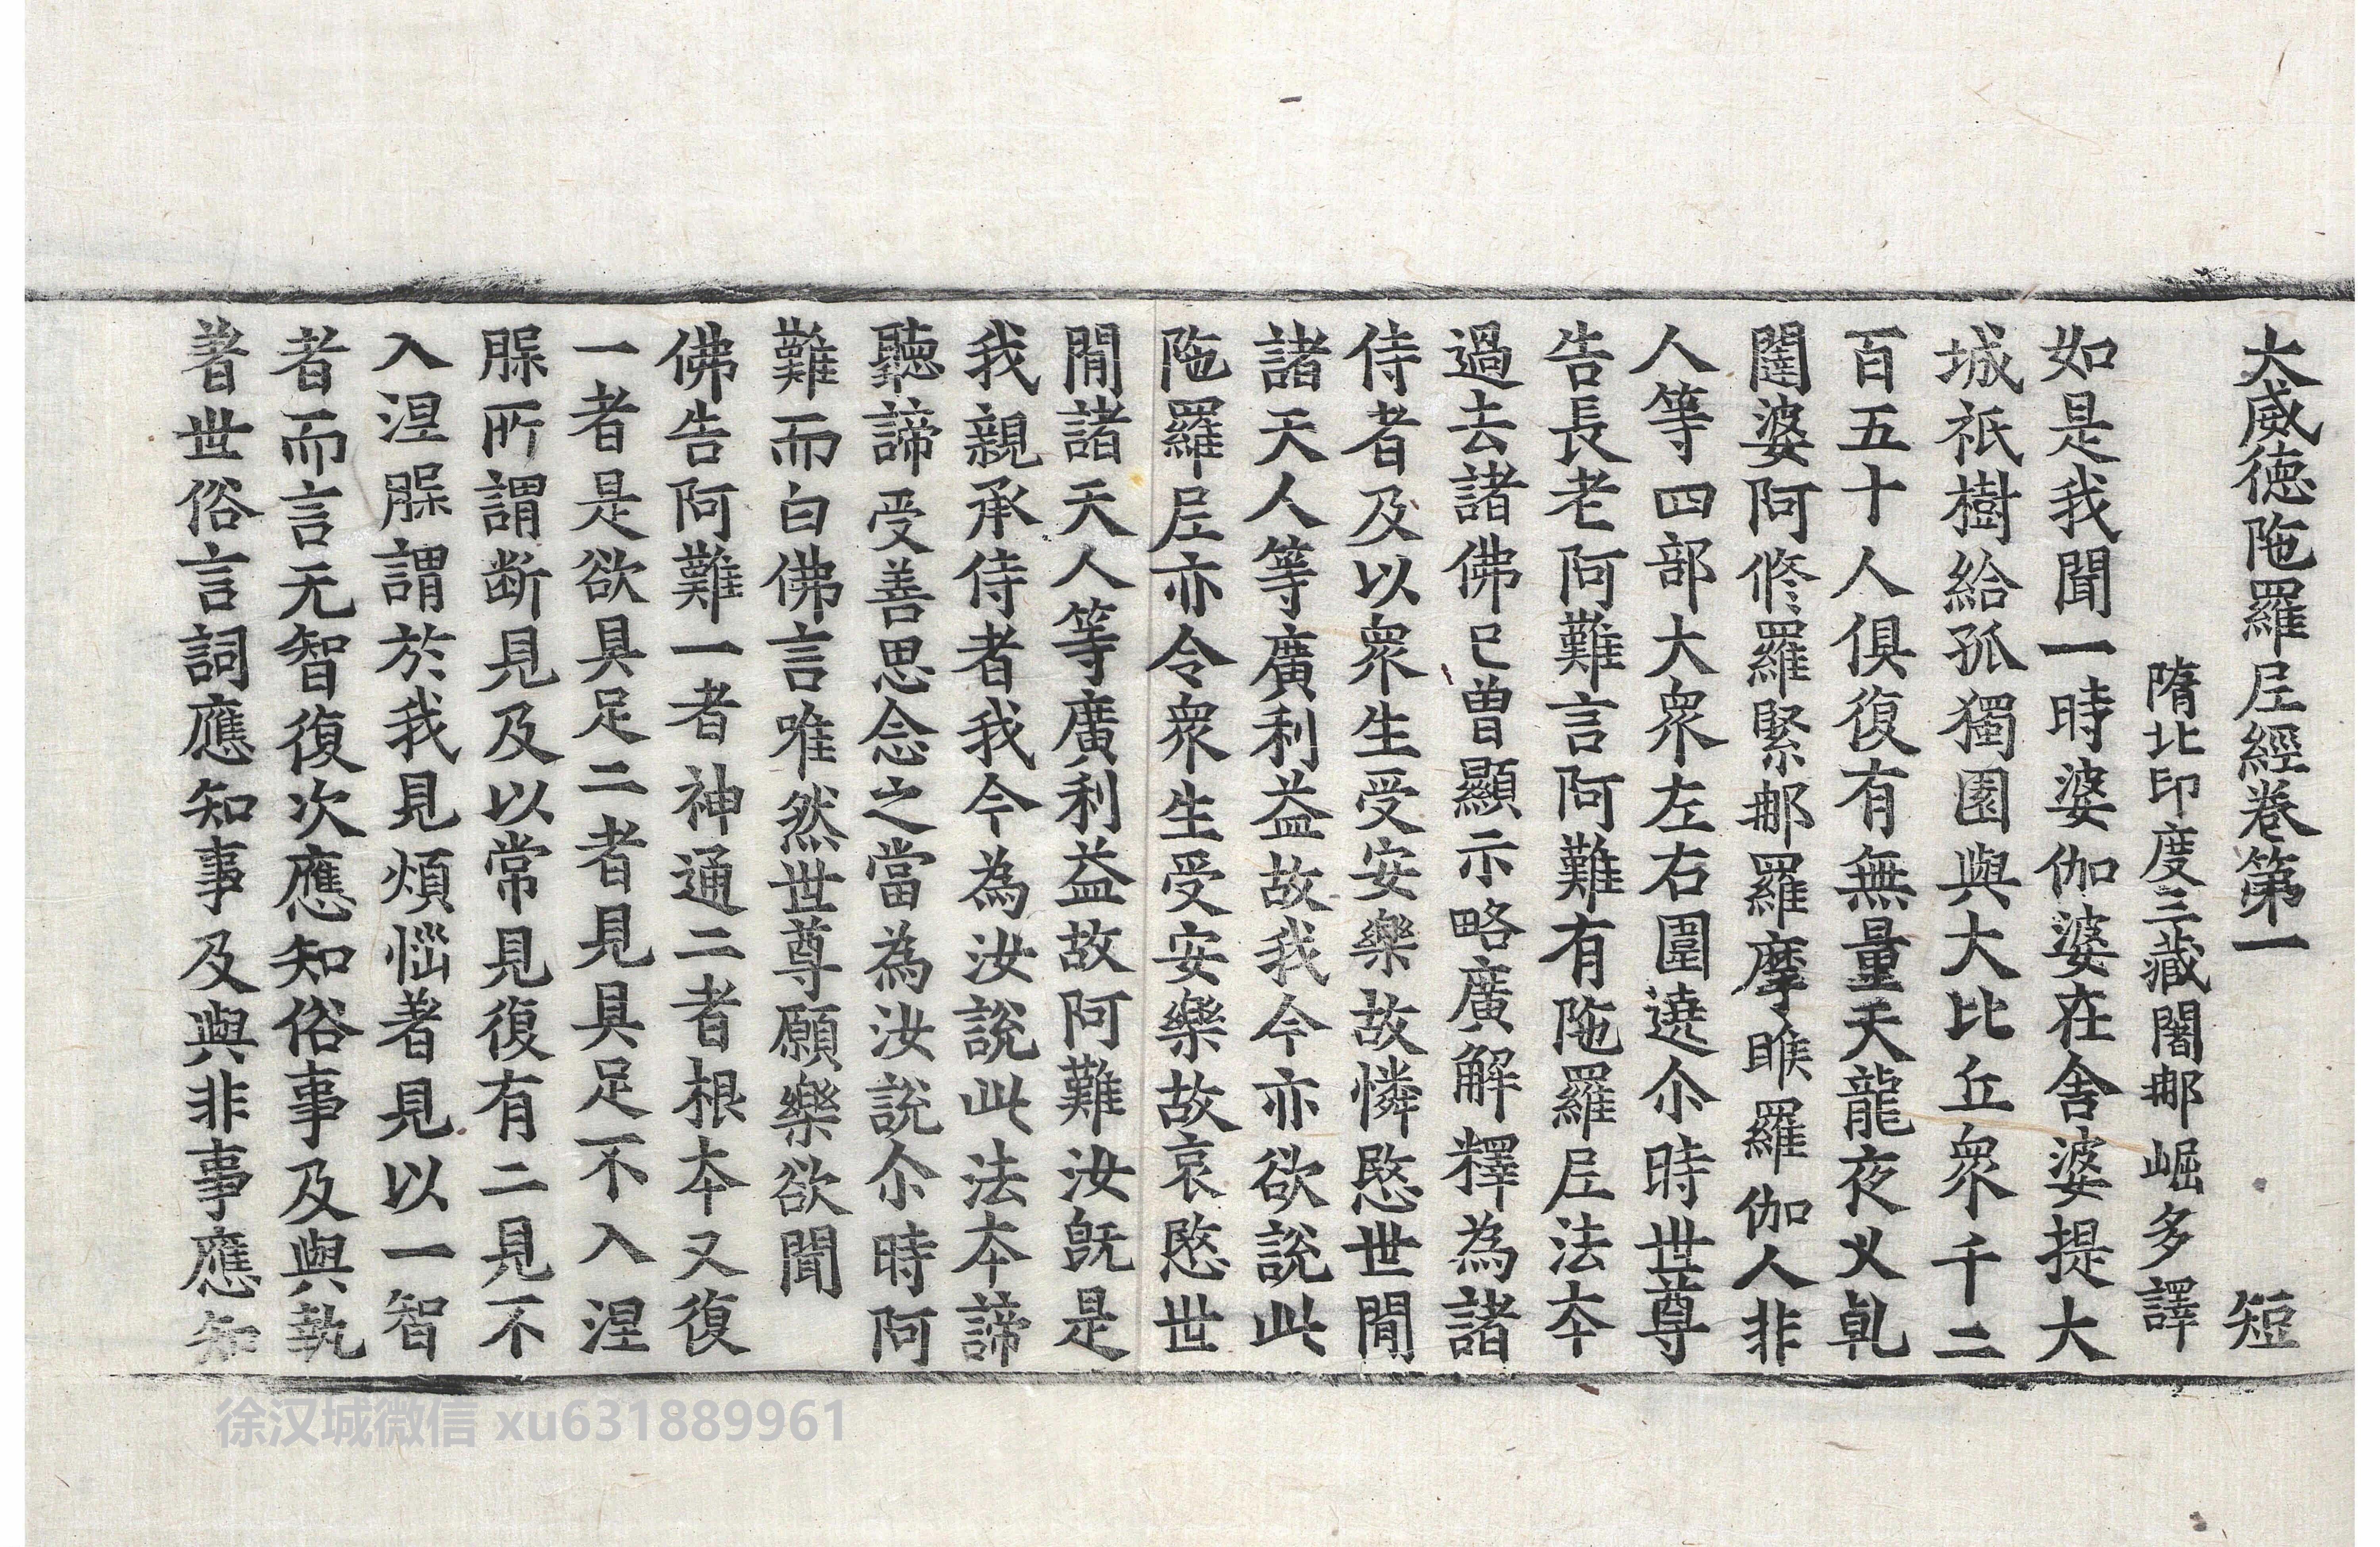 大威德陁羅𡰱經卷第一 短
隋北印度三藏闍𨚗崛多譯
如是我聞一時婆伽婆在舍婆提大
城祇樹給孤獨園與大比丘衆千二
百五十人俱復有無量天龍夜叉乹
闥婆阿修羅緊𨚗羅摩睺羅伽人非
人等四部大衆左右圍遶尒時世尊
告長老阿難言阿難有陁羅𡰱法夲
過去諸佛已曽顯示略廣解釋為諸
侍者及以衆生受安樂故憐愍世閒
諸天人等廣利益故我今亦欲説此
陁羅𡰱亦令衆生受安樂故哀愍世
閒諸天人等廣利益故阿難汝旣是
我親承侍者我今為汝説此法夲諦
聽諦受善思念之當為汝説尒時阿
難而白佛言唯然世尊願樂欲聞
佛告阿難一者神通二者根夲又復
一者是欲具足二者見具足不入涅
𦘺所謂斷見及以常見復有二見不
入涅𦘺謂於我見煩惱著見以一智
者而言无智復次應知俗事及與執
著世俗言詞應知事及與非事應知
徐汉城微信 xu631889961